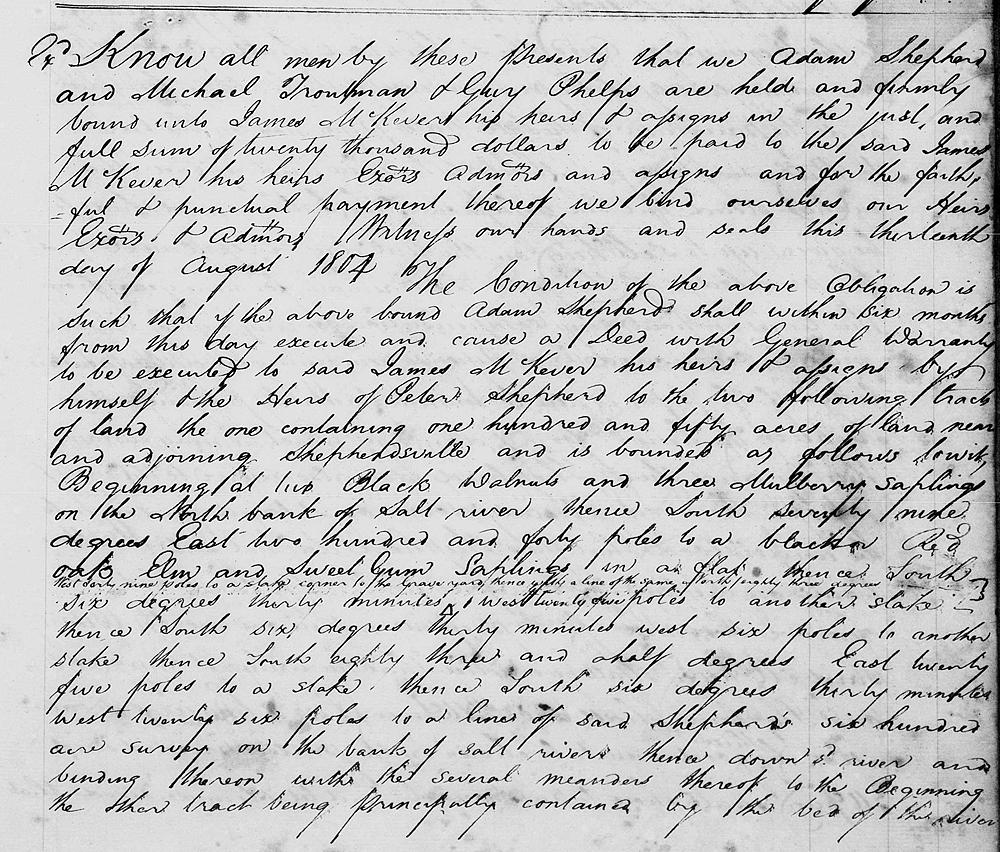 Know all men by these presents that we Adam Shepherd
and Michael Troutman & Guy Phelps are held and firmly
bound unto James McKever his heirs & assigns in the just, and
full sum of twenty thousand dollars to be paid to the said James
McKever his heirs Exors Admors and assigns and for the faith,
=ful & punctual payment thereof we bind ourselves our Heirs
Exors. & Admors, Witness our hands and seals this thirteenth
day of August 1804 The Condition of the above Obligation is
such that if the above bound Adam Shepherd shall within six months
from this day execute and cause a Deed with General Warranty
to be executed to said James McKever his heirs & assigns by
himself & the Heirs of Peter Shepherd to the two following tracts
of land the one containing one hundred and fifty acres of land near
and adjoining Shepherdsville and is bounded as follows towit,
Beginning at two Black Walnuts and three Mulberry saplings
on the North bank of Salt river thence South seventy nine
degrees East two hundred and forty poles to a black or Red
oak Elm and Sweet Gum Saplings in a flat thence South
West forty nine poles to a stake corner to the Grave yard, thence with a line of the same North eighty three degrees
six degrees thirty minutes ^ west twenty five poles to another stake
thence South six degrees thirty minutes west six poles to another
stake thence South eighty three and a half degrees East twenty
five poles to a stake. thence South six degrees thirty minutes
West twenty six poles to a line of said Shepherd's six hundred
acre survey on the bank of salt river thence down sd. river and
binding thereon with the several meanders thereof to the Beginning
the other tract being principally contained by the bed of the river